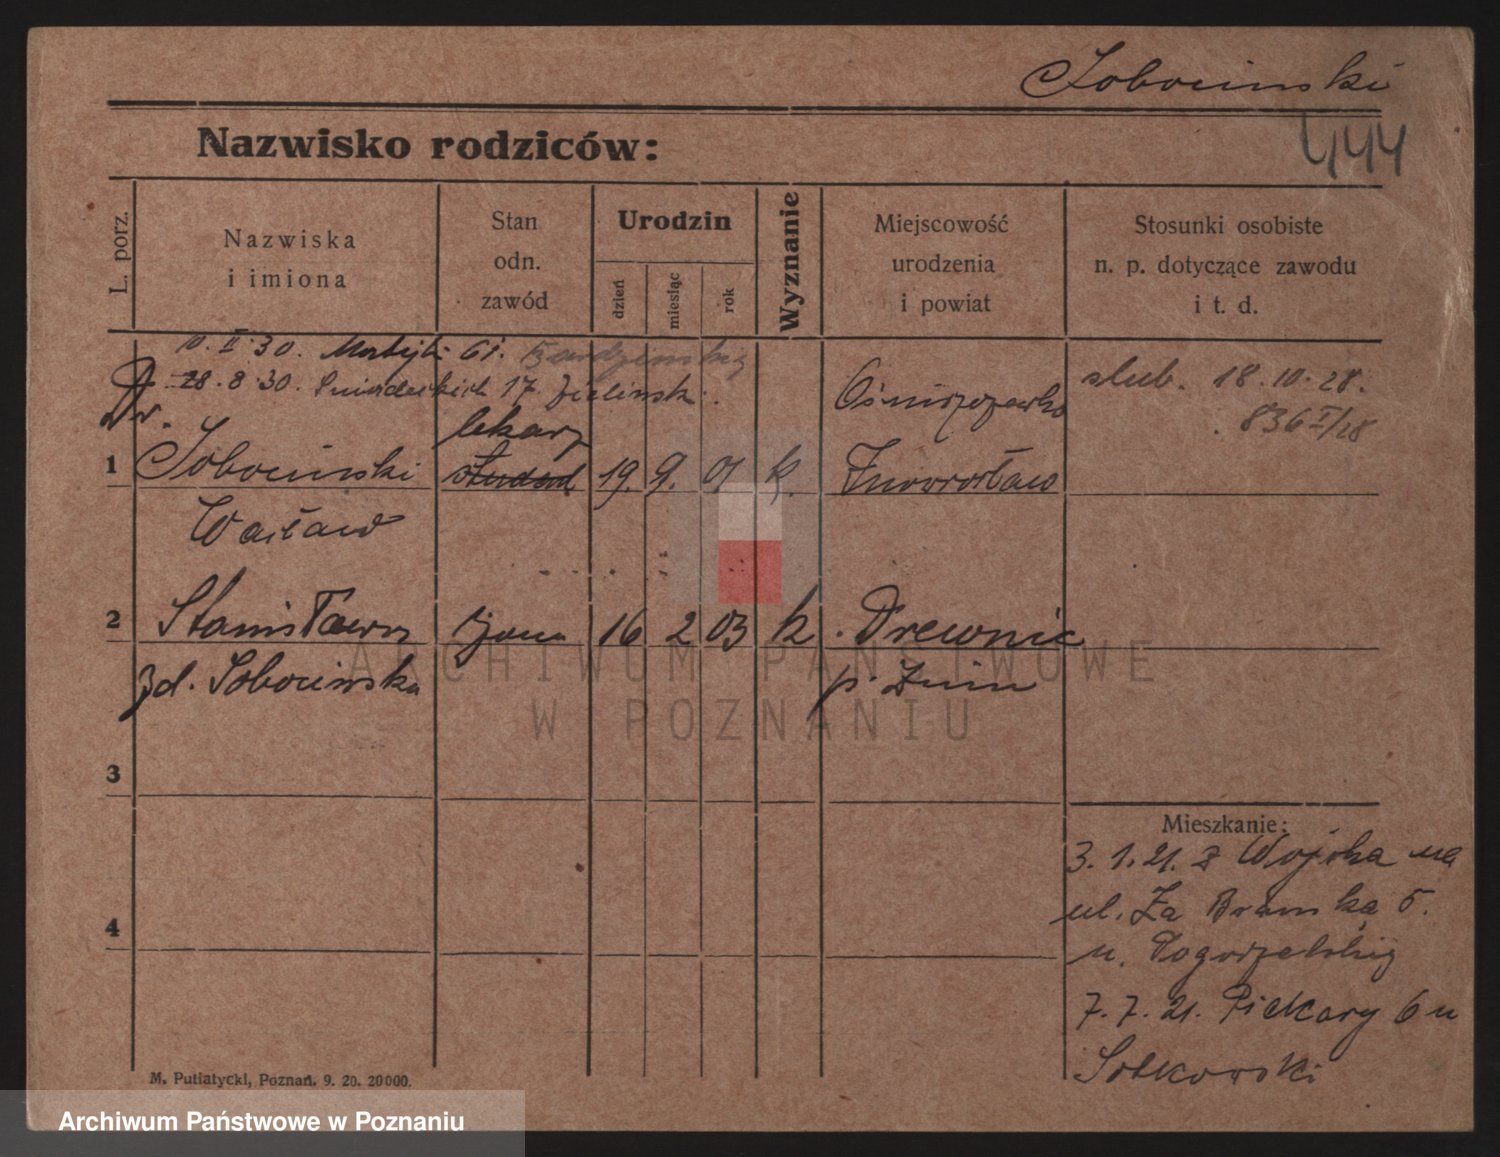 Sobociński
444
Nazwisko rodziców:
L. porz.
Nazwiska
i imiona
Stan
odn.
zawód
Urodzin
dzień
miesiąc
rok
Wyznanie
Miejscowość
urodzenia
i powiat
Stosunki osobiste
n. p. dotyczące zawodu
i t. d.
10. II. 30. Matejki 61.
28. 8. 30. Śniadeckich 17. Zielinski
Dr.
lekarz
1 Sobociński student 19. 9. 01 k. Inowrocław
Wacław
ślub. 18. 10. 28.
836 I/28
2 Stanisława żona 16 2 03 k. Drewnie
zd. Sobocińska p. Żnin
3
4
Mieszkanie:
3. 1. 21. z Wojska na
ul. Za Bramką 5.
u. Pogorzelskiej
7. 7. 21. Piekary 6 u
Sobkowski
M. Putiatycki, Poznań. 9. 20. 20000.
ARCHIWUM PAŃSTWOWE
W POZNANIU
Archiwum Państwowe w Poznaniu